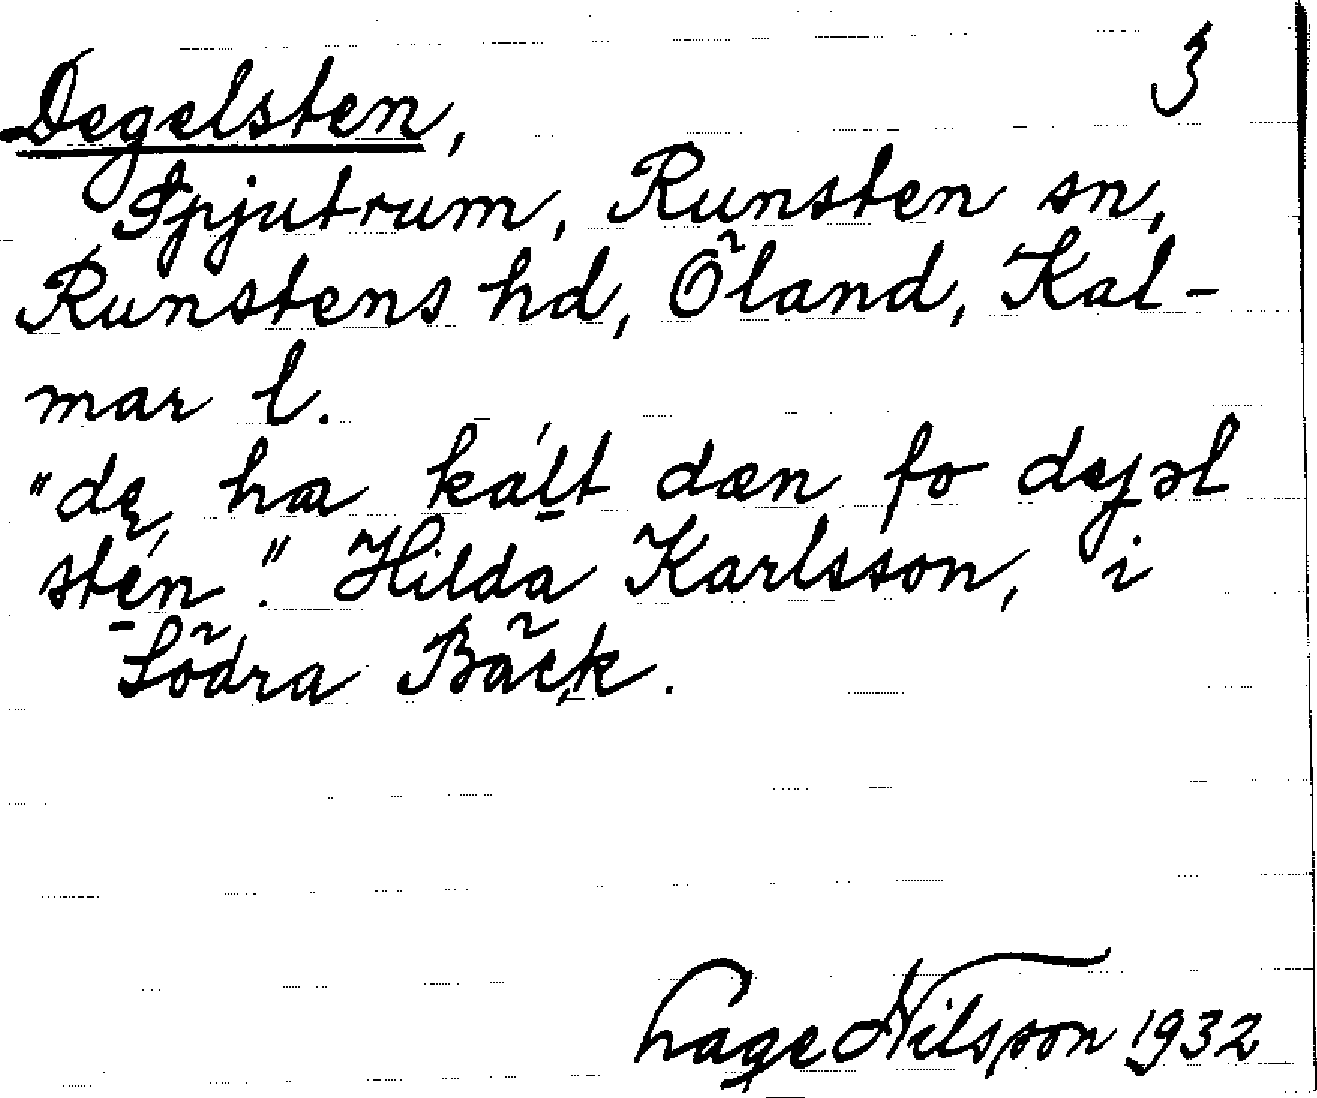 3
Degelsten,
Spjutrum, Runsten sn,
Runstens hd, Öland, Kal-
mar l.
"dę ha kált dæn fo dejəl
stén." Hilda Karlsson, i
Södra Bäck.
Lage Nilsson 1932